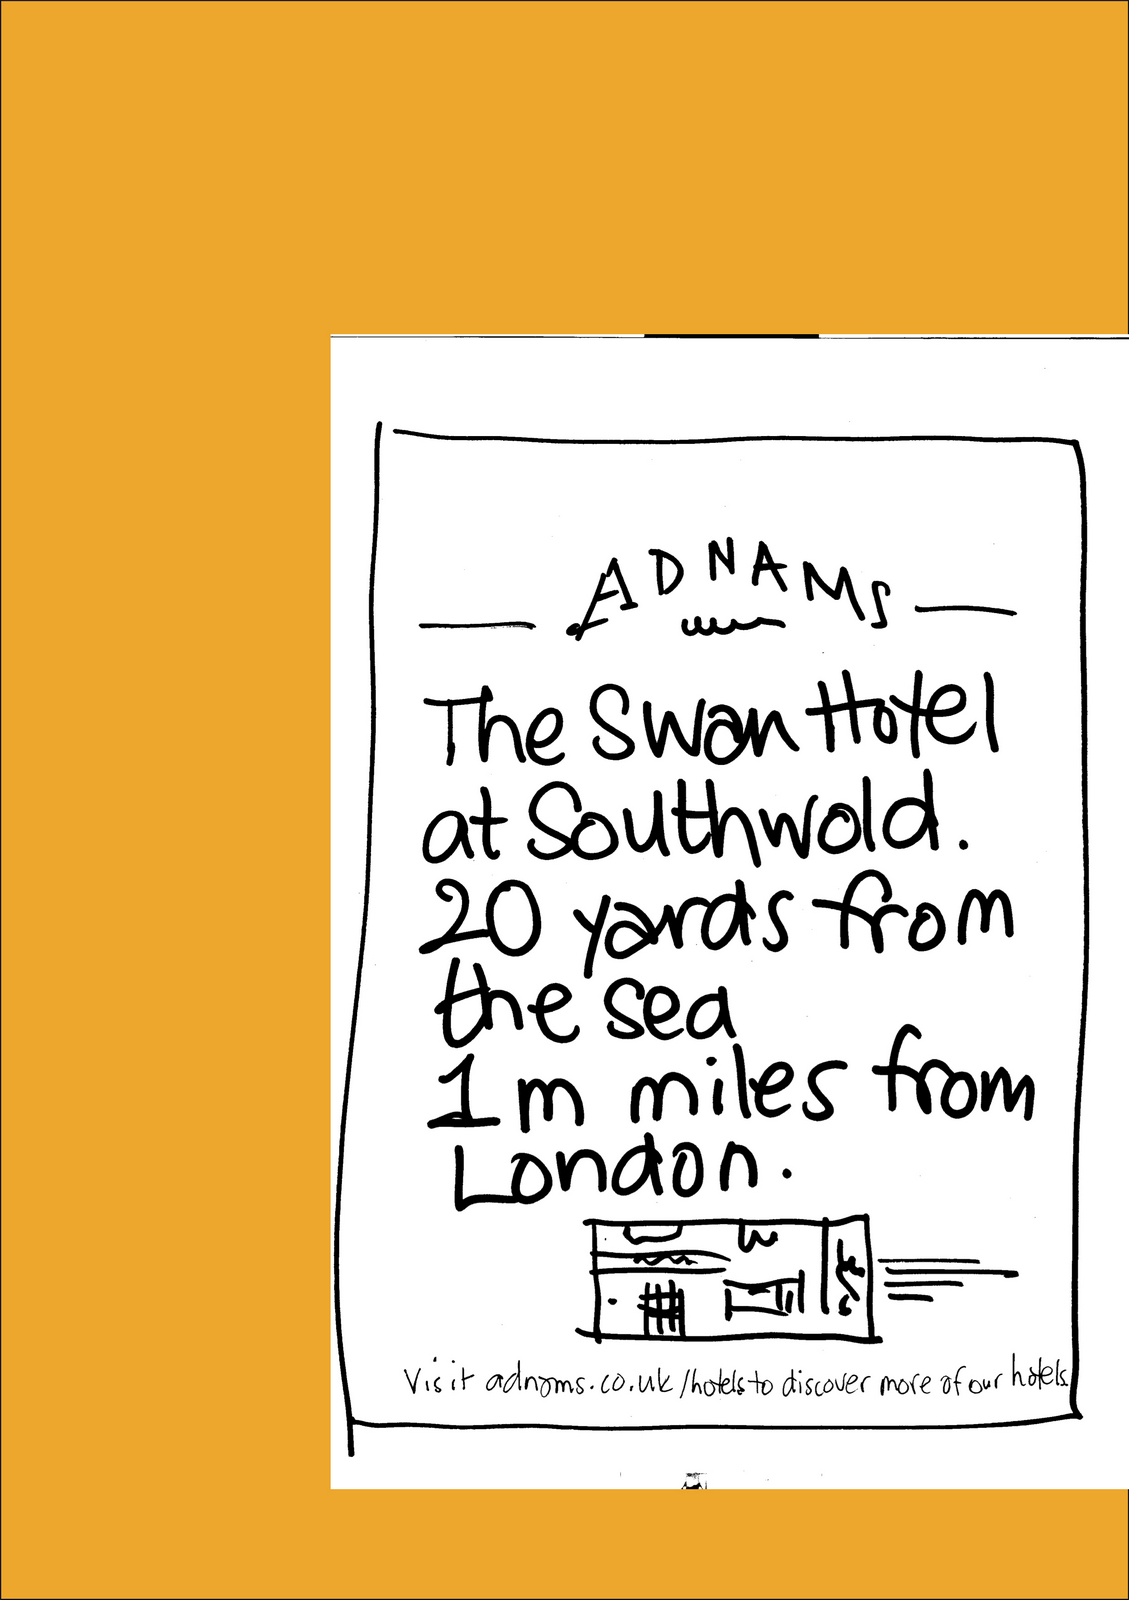 ADNAMS
The Swan Hotel
at Southwold.
20 yards from
the sea
1m miles from
London.
Visit adnams.co.uk/hotels to discover more of our hotels.